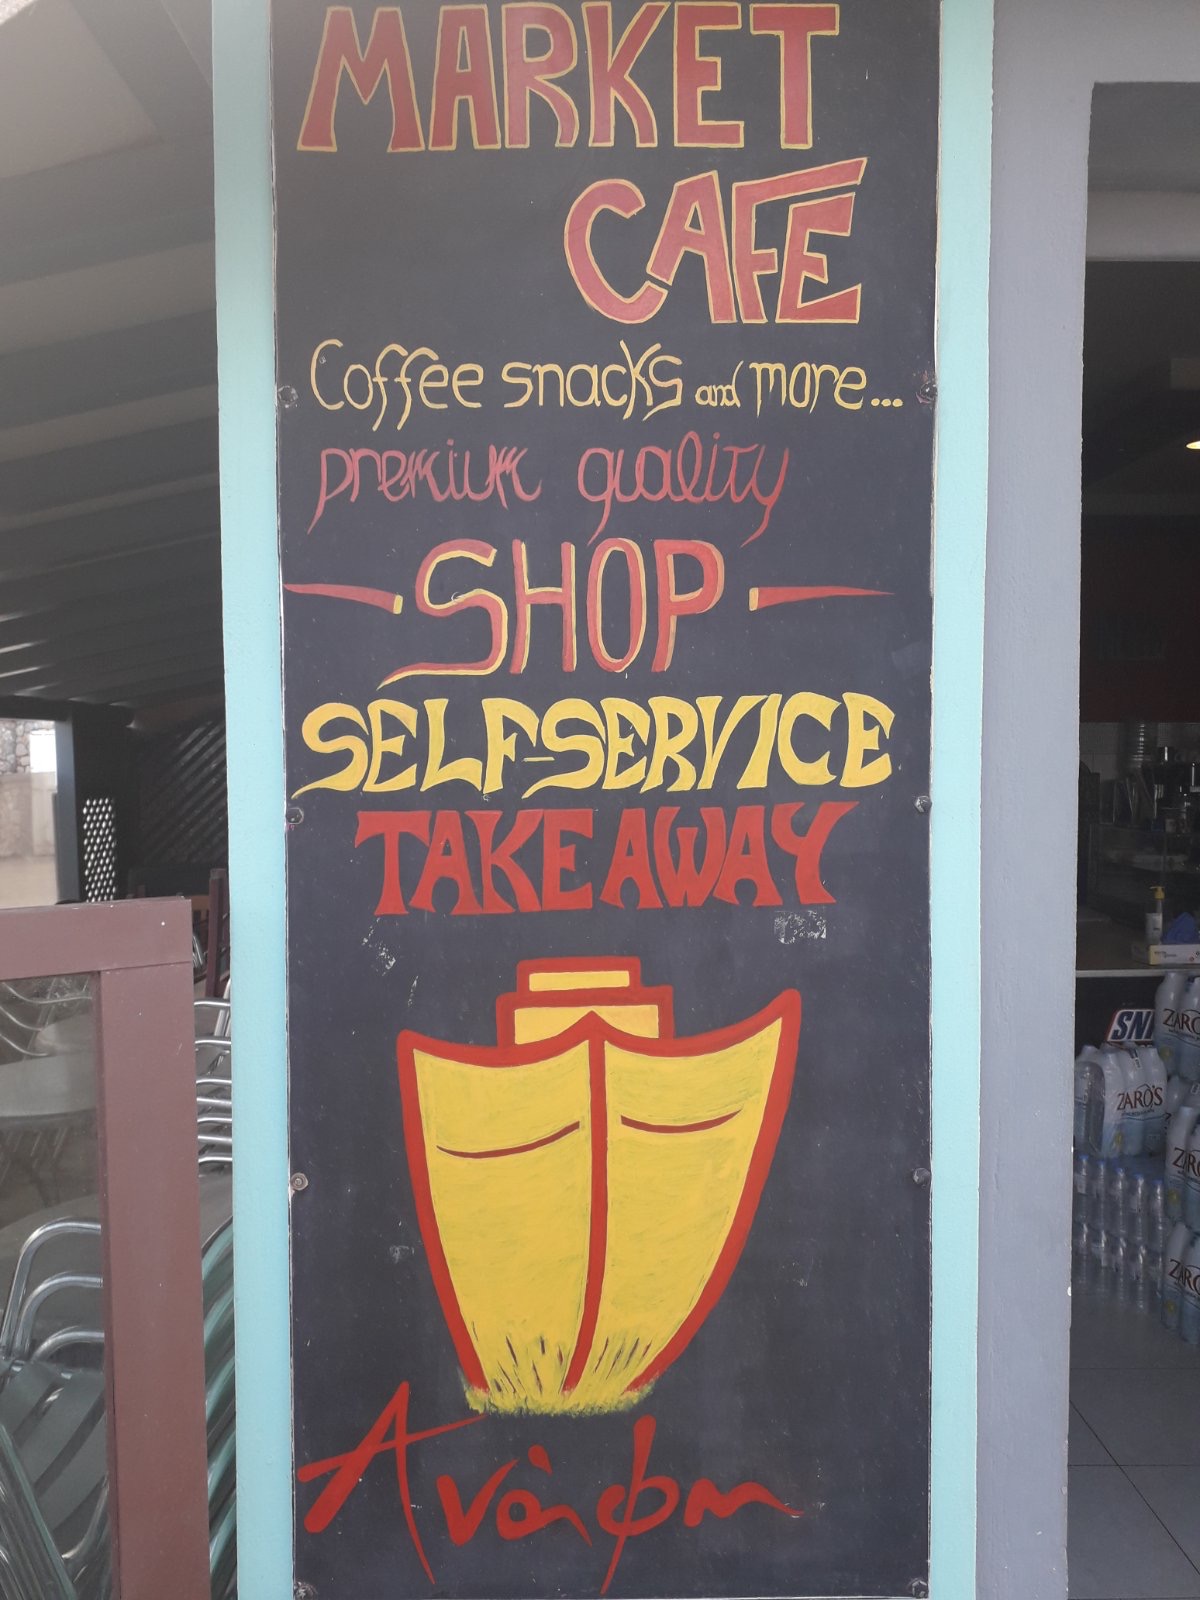 MARKET
CAFE
Coffee snacks and more...
premium quality
SHOP
SELF-SERVICE
TAKE AWAY
Ανάφη
ZARO'S